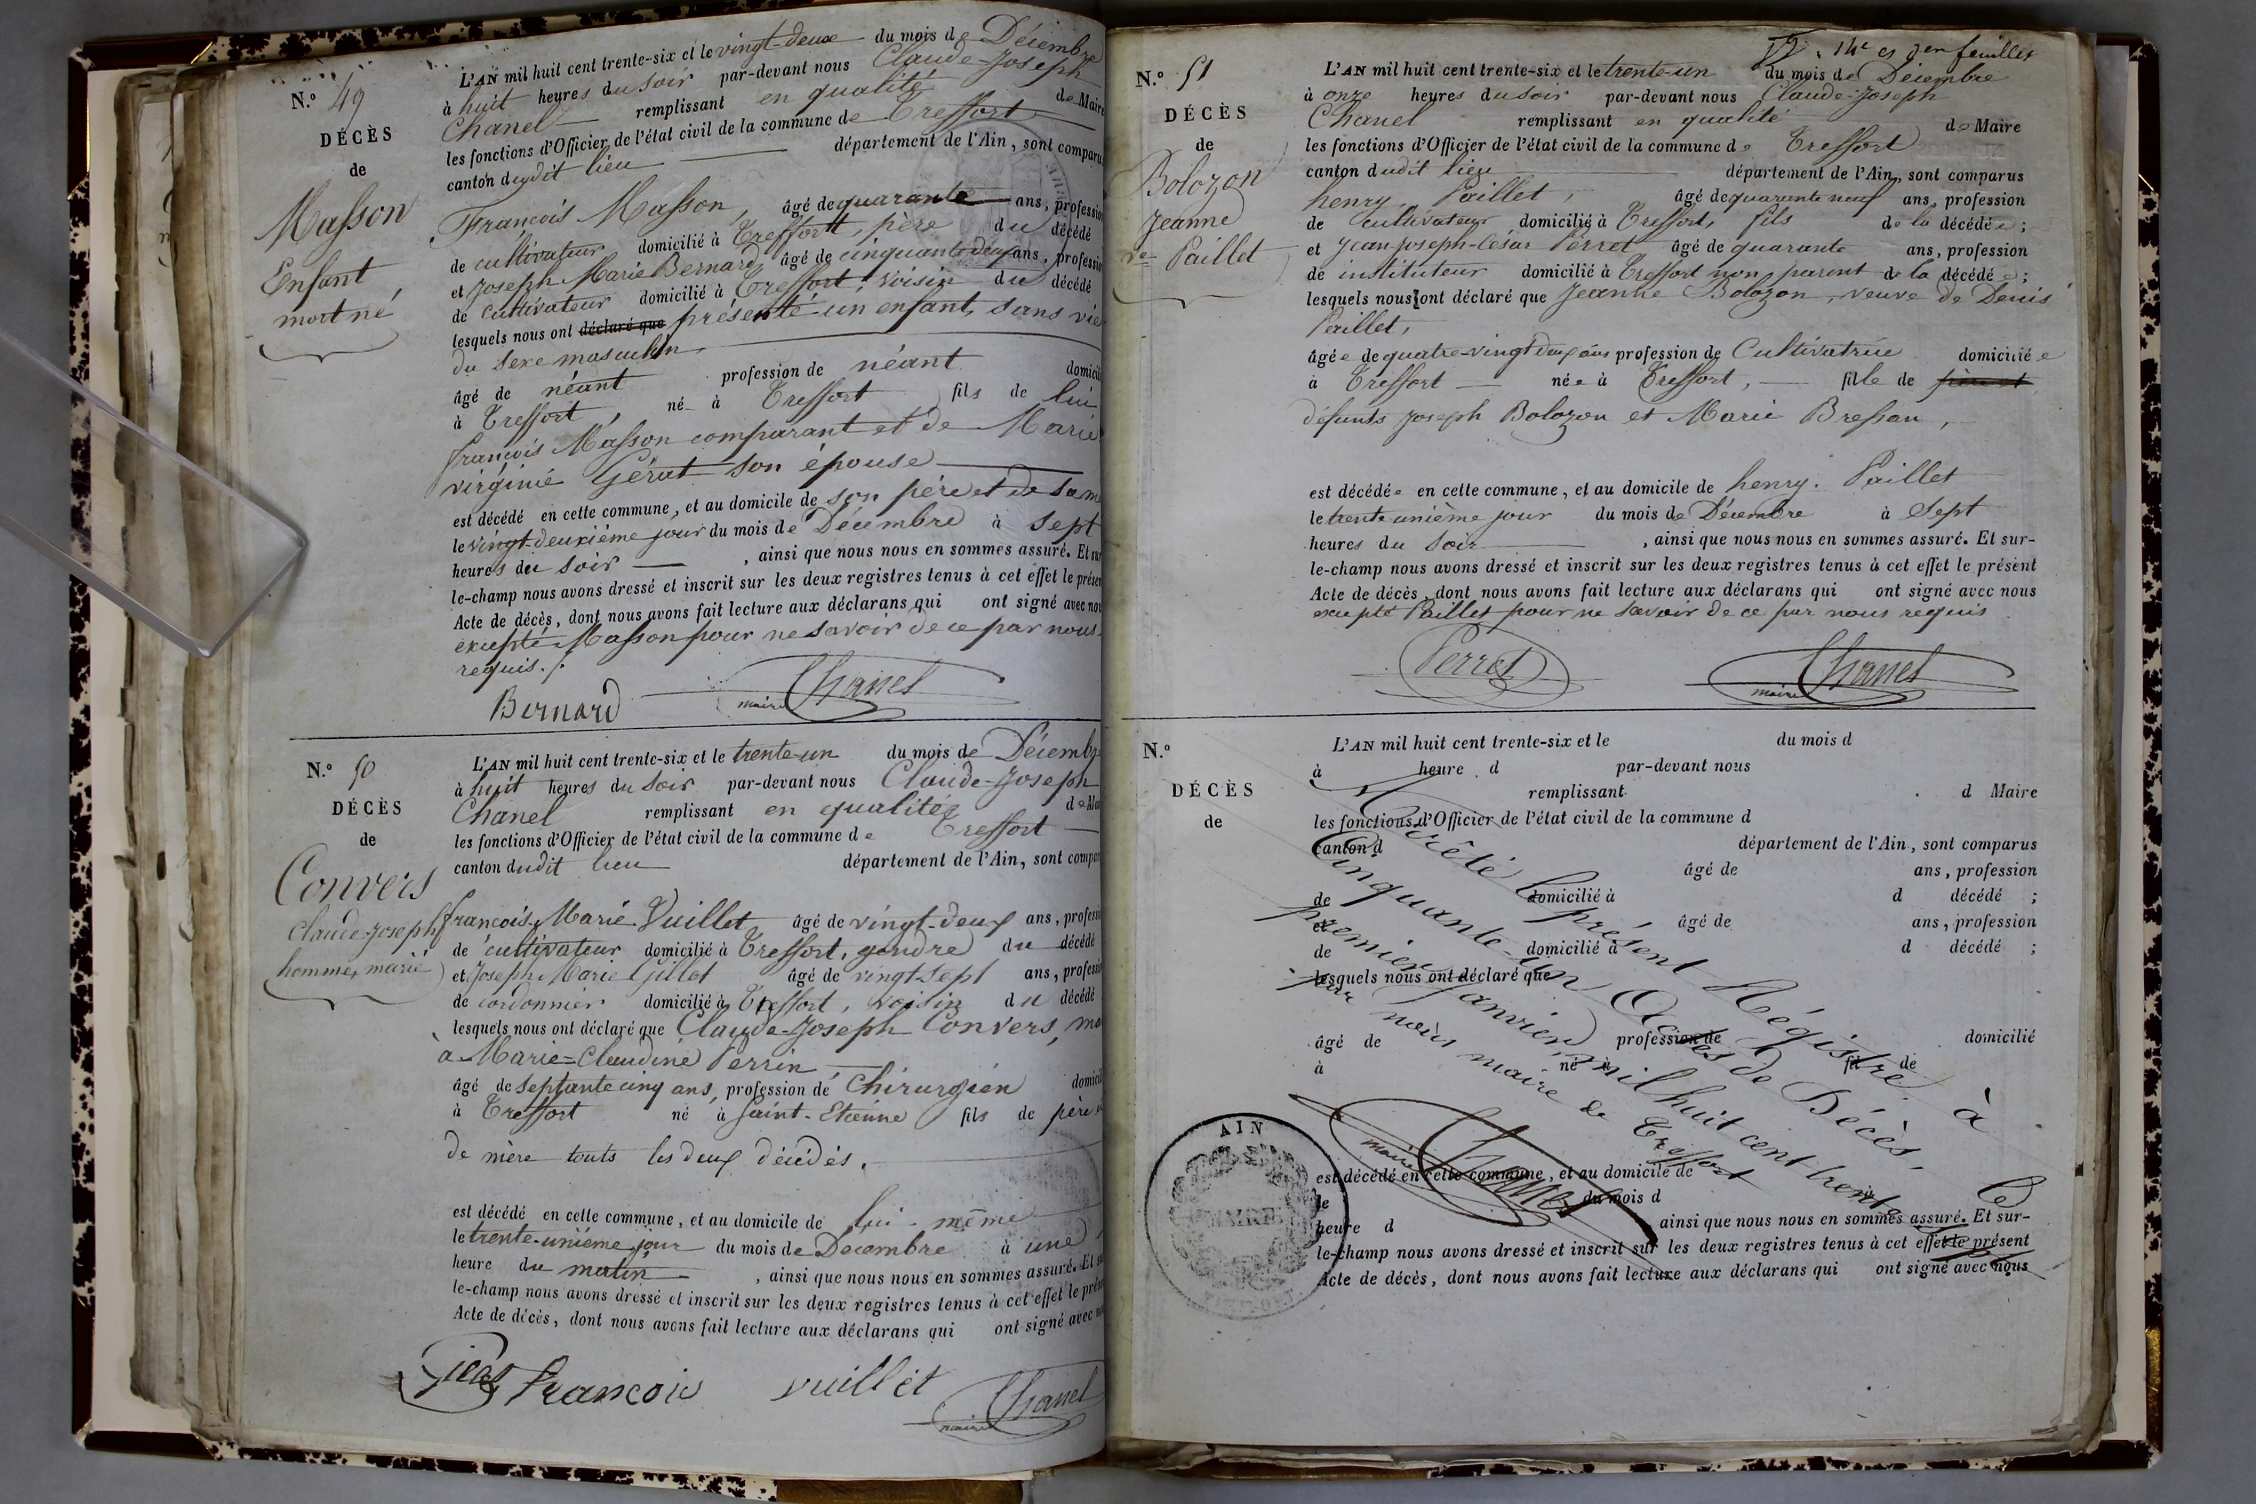 N.º 49
DÉCÈS
de
Masson
Enfant
mort né
L'AN mil huit cent trente-six et le vingt-deux du mois de Décembre
à huit heures du soir par-devant nous Claude-Joseph
Chanel remplissant en qualité de Maire
les fonctions d'Officier de l'état civil de la commune de Treffort
canton dudit lieu département de l'Ain, sont comparu
François Masson, âgé de quarante ans, profession
de cultivateur domicilié à Treffort, père du décédé
et Joseph Marie Bernard âgé de cinquante deux ans, profession
de cultivateur domicilié à Treffort, voisin du décédé
lesquels nous ont déclaré que présenté un enfant, sans vie
du sexe masculin
âgé de néant profession de néant domicili
à Treffort, né à Treffort fils de lui
françois Masson comparant et de Marie
virginie Gérat son épouse
est décédé en cette commune, et au domicile de son père et de sa m
le vingt-deuxième jour du mois de Décembre à sept
heures du soir, ainsi que nous nous en sommes assuré. Et sur
le-champ nous avons dressé et inscrit sur les deux registres tenus à cet effet le présen
Acte de décès, dont nous avons fait lecture aux déclarans qui ont signé avec nou
excepté Masson pour ne savoir de ce par nous
requis./.
Bernard maire Chanel
N.º 50
DÉCÈS
de
Convers
Claude-Joseph
homme marié
L'AN mil huit cent trente-six et le trente-un du mois de Décembre
à huit heures du soir par-devant nous Claude-Joseph
Chanel remplissant en qualité de Mai
les fonctions d'Officier de l'état civil de la commune de Treffort
canton dudit lieu département de l'Ain, sont compar
françois-Marie Vuillet âgé de vingt-deux ans, professi
de cultivateur domicilié à Treffort, gendre du décédé
et Joseph Marie Gillet âgé de vingt sept ans, professi
de cordonnier domicilié à Treffort, voisin du décédé
lesquels nous ont déclaré que Claude-Joseph Convers, ma
à Marie-Claudine Perrin
âgé de septante cinq ans, profession de Chirurgien domicil
à Treffort né à Saint-Etienne fils de père
de mère touts les deux décédés.
est décédé en cette commune, et au domicile de lui-même
le trente-unième jour du mois de Décembre à une
heure du matin, ainsi que nous nous en sommes assuré. Et s
le-champ nous avons dressé et inscrit sur les deux registres tenus à cet effet le prése
Acte de décès, dont nous avons fait lecture aux déclarans qui ont signé avec n
françois vuillet maire Chanel
feuillet
N.º 51
DÉCÈS
de
Bolozon
Jeanne
ve Paillet
L'AN mil huit cent trente-six et le trente-un du mois de Décembre
à onze heures du soir par-devant nous Claude-Joseph
Chanel remplissant en qualité de Maire
les fonctions d'Officier de l'état civil de la commune de Treffort
canton dudit lieu département de l'Ain, sont comparus
henry Paillet, âgé de quarante neuf ans, profession
de Cultivateur domicilié à Treffort, fils de la décédée;
et Jean-Joseph-César Perret âgé de quarante ans, profession
de instituteur domicilié à Treffort non parent de la décédée;
lesquels nous ont déclaré que Jeanne Bolozon, veuve de Denis
Paillet,
âgée de quatre-vingt deux ans profession de Cultivatrice domiciliée
à Treffort née à Treffort, fille de
défunts Joseph Bolozon et Marie Bressan,
est décédée en cette commune, et au domicile de henry Paillet
le trente unième jour du mois de Décembre à sept
heures du soir, ainsi que nous nous en sommes assuré. Et sur-
le-champ nous avons dressé et inscrit sur les deux registres tenus à cet effet le présent
Acte de décès, dont nous avons fait lecture aux déclarans qui ont signé avec nous
excepté Paillet pour ne savoir de ce par nous requis
Perret maire Chanel
N.º
DÉCÈS
de
L'AN mil huit cent trente-six et le du mois d
à heure d par-devant nous
remplissant d Maire
les fonctions d'Officier de l'état civil de la commune d
canton d département de l'Ain, sont comparus
âgé de ans, profession
de domicilié à d décédé ;
et âgé de ans, profession
de domicilié à d décédé ;
lesquels nous ont déclaré que
âgé de profession de domicilié
à né à fil de
est décédé en cette commune, et au domicile de
le du mois d
heure d ainsi que nous nous en sommes assuré. Et sur-
le-champ nous avons dressé et inscrit sur les deux registres tenus à cet effet le présent
Acte de décès, dont nous avons fait lecture aux déclarans qui ont signé avec nous
Arrêté le présent Régistre à
Cinquante-un Actes de Décès, le
premier Janvier mil huit cent trente sept
par nous maire de Treffort
maire Chanel
AIN
MAIRIE